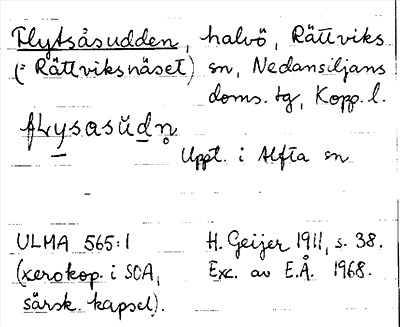 Flytsåsudden, halvö, Rättviks
(= Rättviksnäset) sn, Nedansiljans
doms. tg, Kopp. l.
fLysasŭdn̥
Uppt. i Alfta sn
ULMA 565:1 H. Geijer 1911, s. 38.
(xerokop. i SOA, Exc. av E.Å. 1968.
särsk. kapsel).